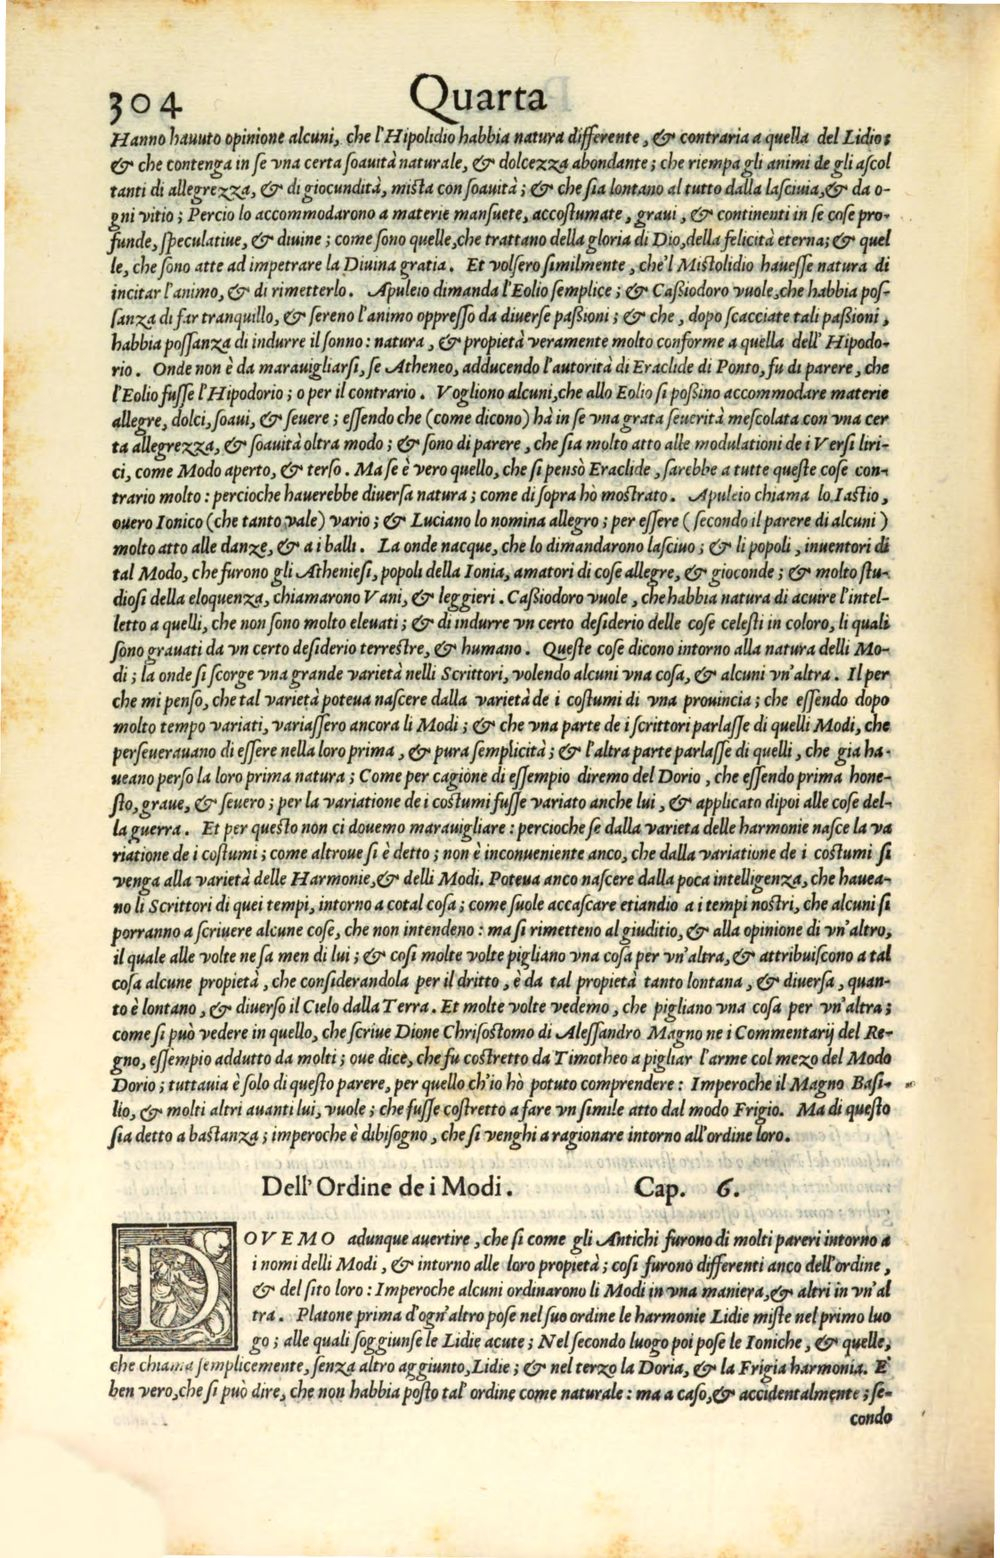 304 Quarta
Hanno hauuto opinione alcuni, che l'Hipolidio habbia natura differente, & contraria a quella del Lidio;
& che contenga in se vna certa ſoauità naturale, & dolcezza abondante; che riempa gli animi de gli aſcol
tanti di allegrezza, & di giocundità, miſta con ſoauità; & che ſia lontano al tutto dalla laſciuia, & da o-
gni vitio; Percio lo accommodarono a materie manſuete, accoſtumate, graui, & continenti in ſe coſe pro-
funde, ſpeculatiue, & diuine; come ſono quelle, che trattano della gloria di Dio, della felicità eterna; & quel
le, che ſono atte ad impetrare la Diuina gratia. Et volſero ſimilmente, che'l Miſtolidio haueſſe natura di
incitar l'animo, & di rimetterlo. Apuleio dimanda l'Eolio ſemplice; & Caßiodoro vuole, che habbia poſ-
ſanza di far tranquillo, & ſereno l'animo oppreſſo da diuerſe paßioni; & che, dopo ſcacciate tali paßioni,
habbia poſſanza di indurre il ſonno: natura, & propietà veramente molto conforme a quella dell' Hipodo-
rio. Onde non è da marauigliarſi, ſe Atheneo, adducendo l'autorità di Eraclide di Ponto, fu di parere, che
l'Eolio fuſſe l'Hipodorio; o per il contrario. Vogliono alcuni, che allo Eolio ſi poßino accommodare materie
allegre, dolci, ſoaui, & ſeuere; eſſendo che (come dicono) hà in ſe vna grata ſeuerità meſcolata con vna cer
ta allegrezza, & ſoauità oltra modo; & ſono di parere, che ſia molto atto alle modulationi de i Verſi liri-
ci, come Modo aperto, & terſo. Ma ſe è vero quello, che ſi pensò Eraclide, ſarebbe a tutte queſte coſe con-
trario molto: percioche hauerebbe diuerſa natura; come di ſopra hò moſtrato. Apuleio chiama lo Iaſtio,
ouero Ionico (che tanto vale) vario; & Luciano lo nomina allegro; per eſſere (ſecondo il parere di alcuni)
molto atto alle danze, & a i balli. La onde nacque, che lo dimandarono laſciuo; & li popoli, inuentori di
tal Modo, che furono gli Athenieſi, popoli della Ionia, amatori di coſe allegre, & gioconde; & molto ſtu-
dioſi della eloquenza, chiamarono Vani, & leggieri. Caßiodoro vuole, che habbia natura di acuire l'intel-
letto a quelli, che non ſono molto eleuati; & di indurre vn certo deſiderio delle coſe celeſti in coloro, li quali
ſono grauati da vn certo deſiderio terreſtre, & humano. Queſte coſe dicono intorno alla natura delli Mo-
di; la onde ſi ſcorge vna grande varietà nelli Scrittori, volendo alcuni vna coſa, & alcuni vn'altra. Il per
che mi penſo, che tal varietà poteua naſcere dalla varietà de i coſtumi di vna prouincia; che eſſendo dopo
molto tempo variati, variaſſero ancora li Modi; & che vna parte de i ſcrittori parlaſſe di quelli Modi, che
perſeuerauano di eſſere nella loro prima, & pura ſemplicità; & l'altra parte parlaſſe di quelli, che gia ha-
ueano perſo la loro prima natura; Come per cagione di eſſempio diremo del Dorio, che eſſendo prima hone-
ſto, graue, & ſeuero; per la variatione de i coſtumi fuſſe variato anche lui, & applicato dipoi alle coſe del-
la guerra. Et per queſto non ci douemo marauigliare: percioche ſe dalla varieta delle harmonie naſce la va
riatione de i coſtumi; come altroue ſi è detto; non è inconueniente anco, che dalla variatione de i coſtumi ſi
venga alla varietà delle Harmonie, & delli Modi. Poteua anco naſcere dalla poca intelligenza, che hauea-
no li Scrittori di quei tempi, intorno a cotal coſa; come ſuole accaſcare etiandio a i tempi noſtri, che alcuni ſi
porranno a ſcriuere alcune coſe, che non intendeno: ma ſi rimetteno al giuditio, & alla opinione di vn'altro,
il quale alle volte ne ſa men di lui; & coſi molte volte pigliano vna coſa per vn'altra, & attribuiſcono a tal
coſa alcune propietà, che conſiderandola per il dritto, è da tal propietà tanto lontana, & diuerſa, quan-
to è lontano, & diuerſo il Cielo dalla Terra. Et molte volte vedemo, che pigliano vna coſa per vn'altra;
come ſi può vedere in quello, che ſcriue Dione Chriſoſtomo di Aleſſandro Magno ne i Commentarij del Re-
gno, eſſempio addutto da molti; oue dice, che fu coſtretto da Timotheo a pigliar l'arme col mezo del Modo
Dorio; tuttauia è ſolo di queſto parere, per quello ch'io hò potuto comprendere: Imperoche il Magno Baſi-
lio, & molti altri auanti lui, vuole; che fuſſe coſtretto a fare vn ſimile atto dal modo Frigio. Ma di queſto
ſia detto a baſtanza; imperoche è dibiſogno, che ſi venghi a ragionare intorno all'ordine loro.
Dell' Ordine de i Modi. Cap. 6.
DOVEMO adunque auertire, che ſi come gli Antichi furono di molti pareri intorno a
i nomi delli Modi, & intorno alle loro propietà; coſi furono differenti anco dell'ordine,
& del ſito loro: Imperoche alcuni ordinarono li Modi in vna maniera, & altri in vn'al
tra. Platone prima d'ogn'altro poſe nel ſuo ordine le harmonie Lidie miſte nel primo luo
go; alle quali ſoggiunſe le Lidie acute; Nel ſecondo luogo poi poſe le Ioniche, & quelle,
che chiama ſemplicemente, ſenza altro aggiunto, Lidie; & nel terzo la Doria, & la Frigia harmonia. E'
ben vero, che ſi può dire, che non habbia poſto tal' ordine come naturale: ma a caſo, & accidentalmente; ſe-
condo